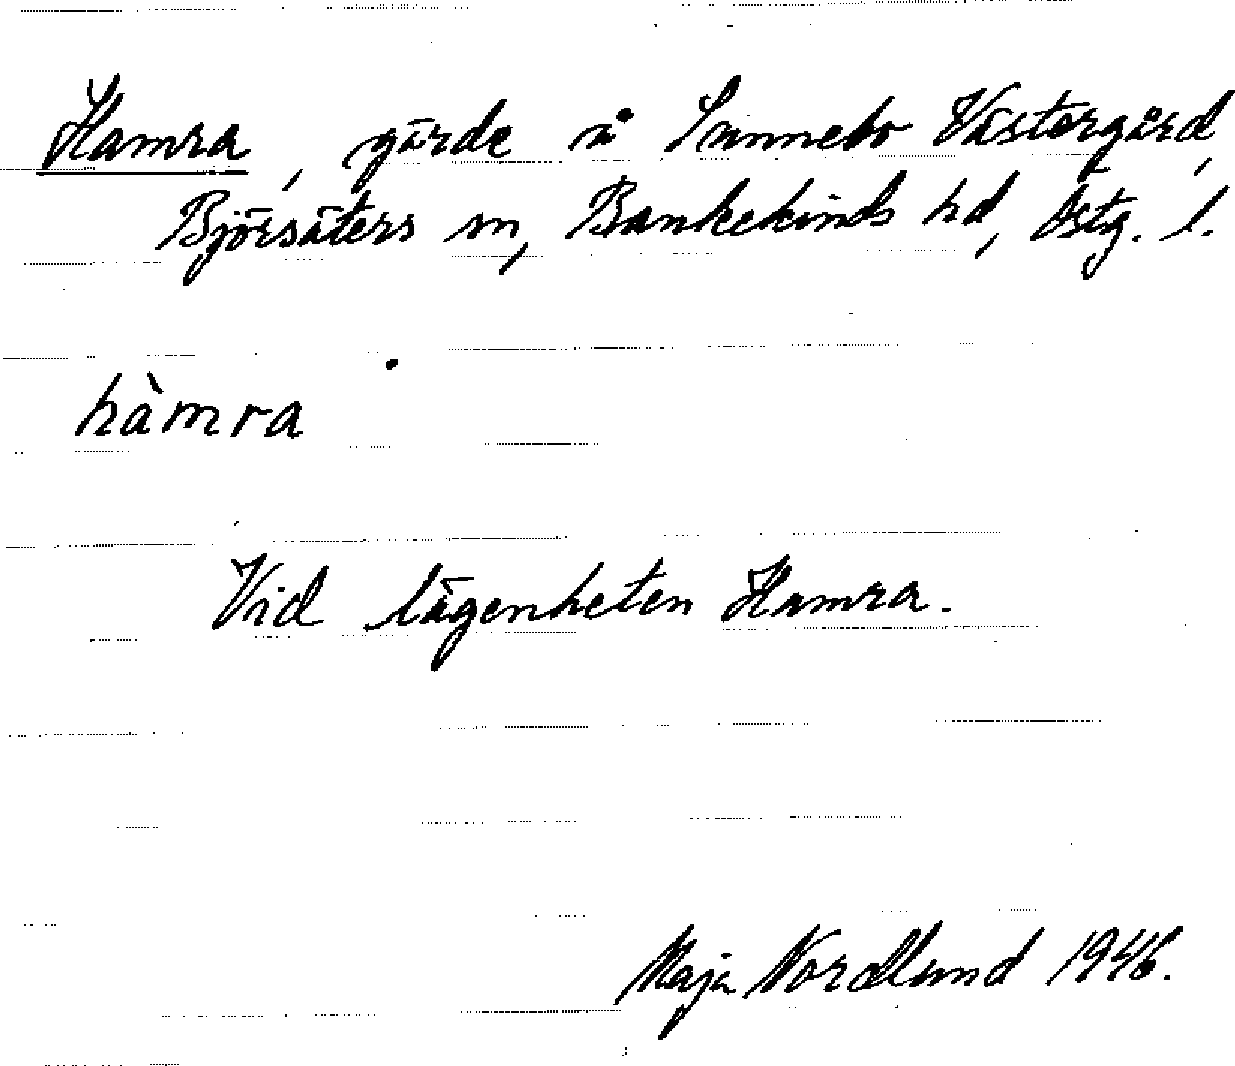 Hamra, gärde å Sunnebo Västergård,
Björsäters sn, Bankekinds hd, Östg. l.
hàmra
Vid lägenheten Hamra.
Maja Nordlund 1946.